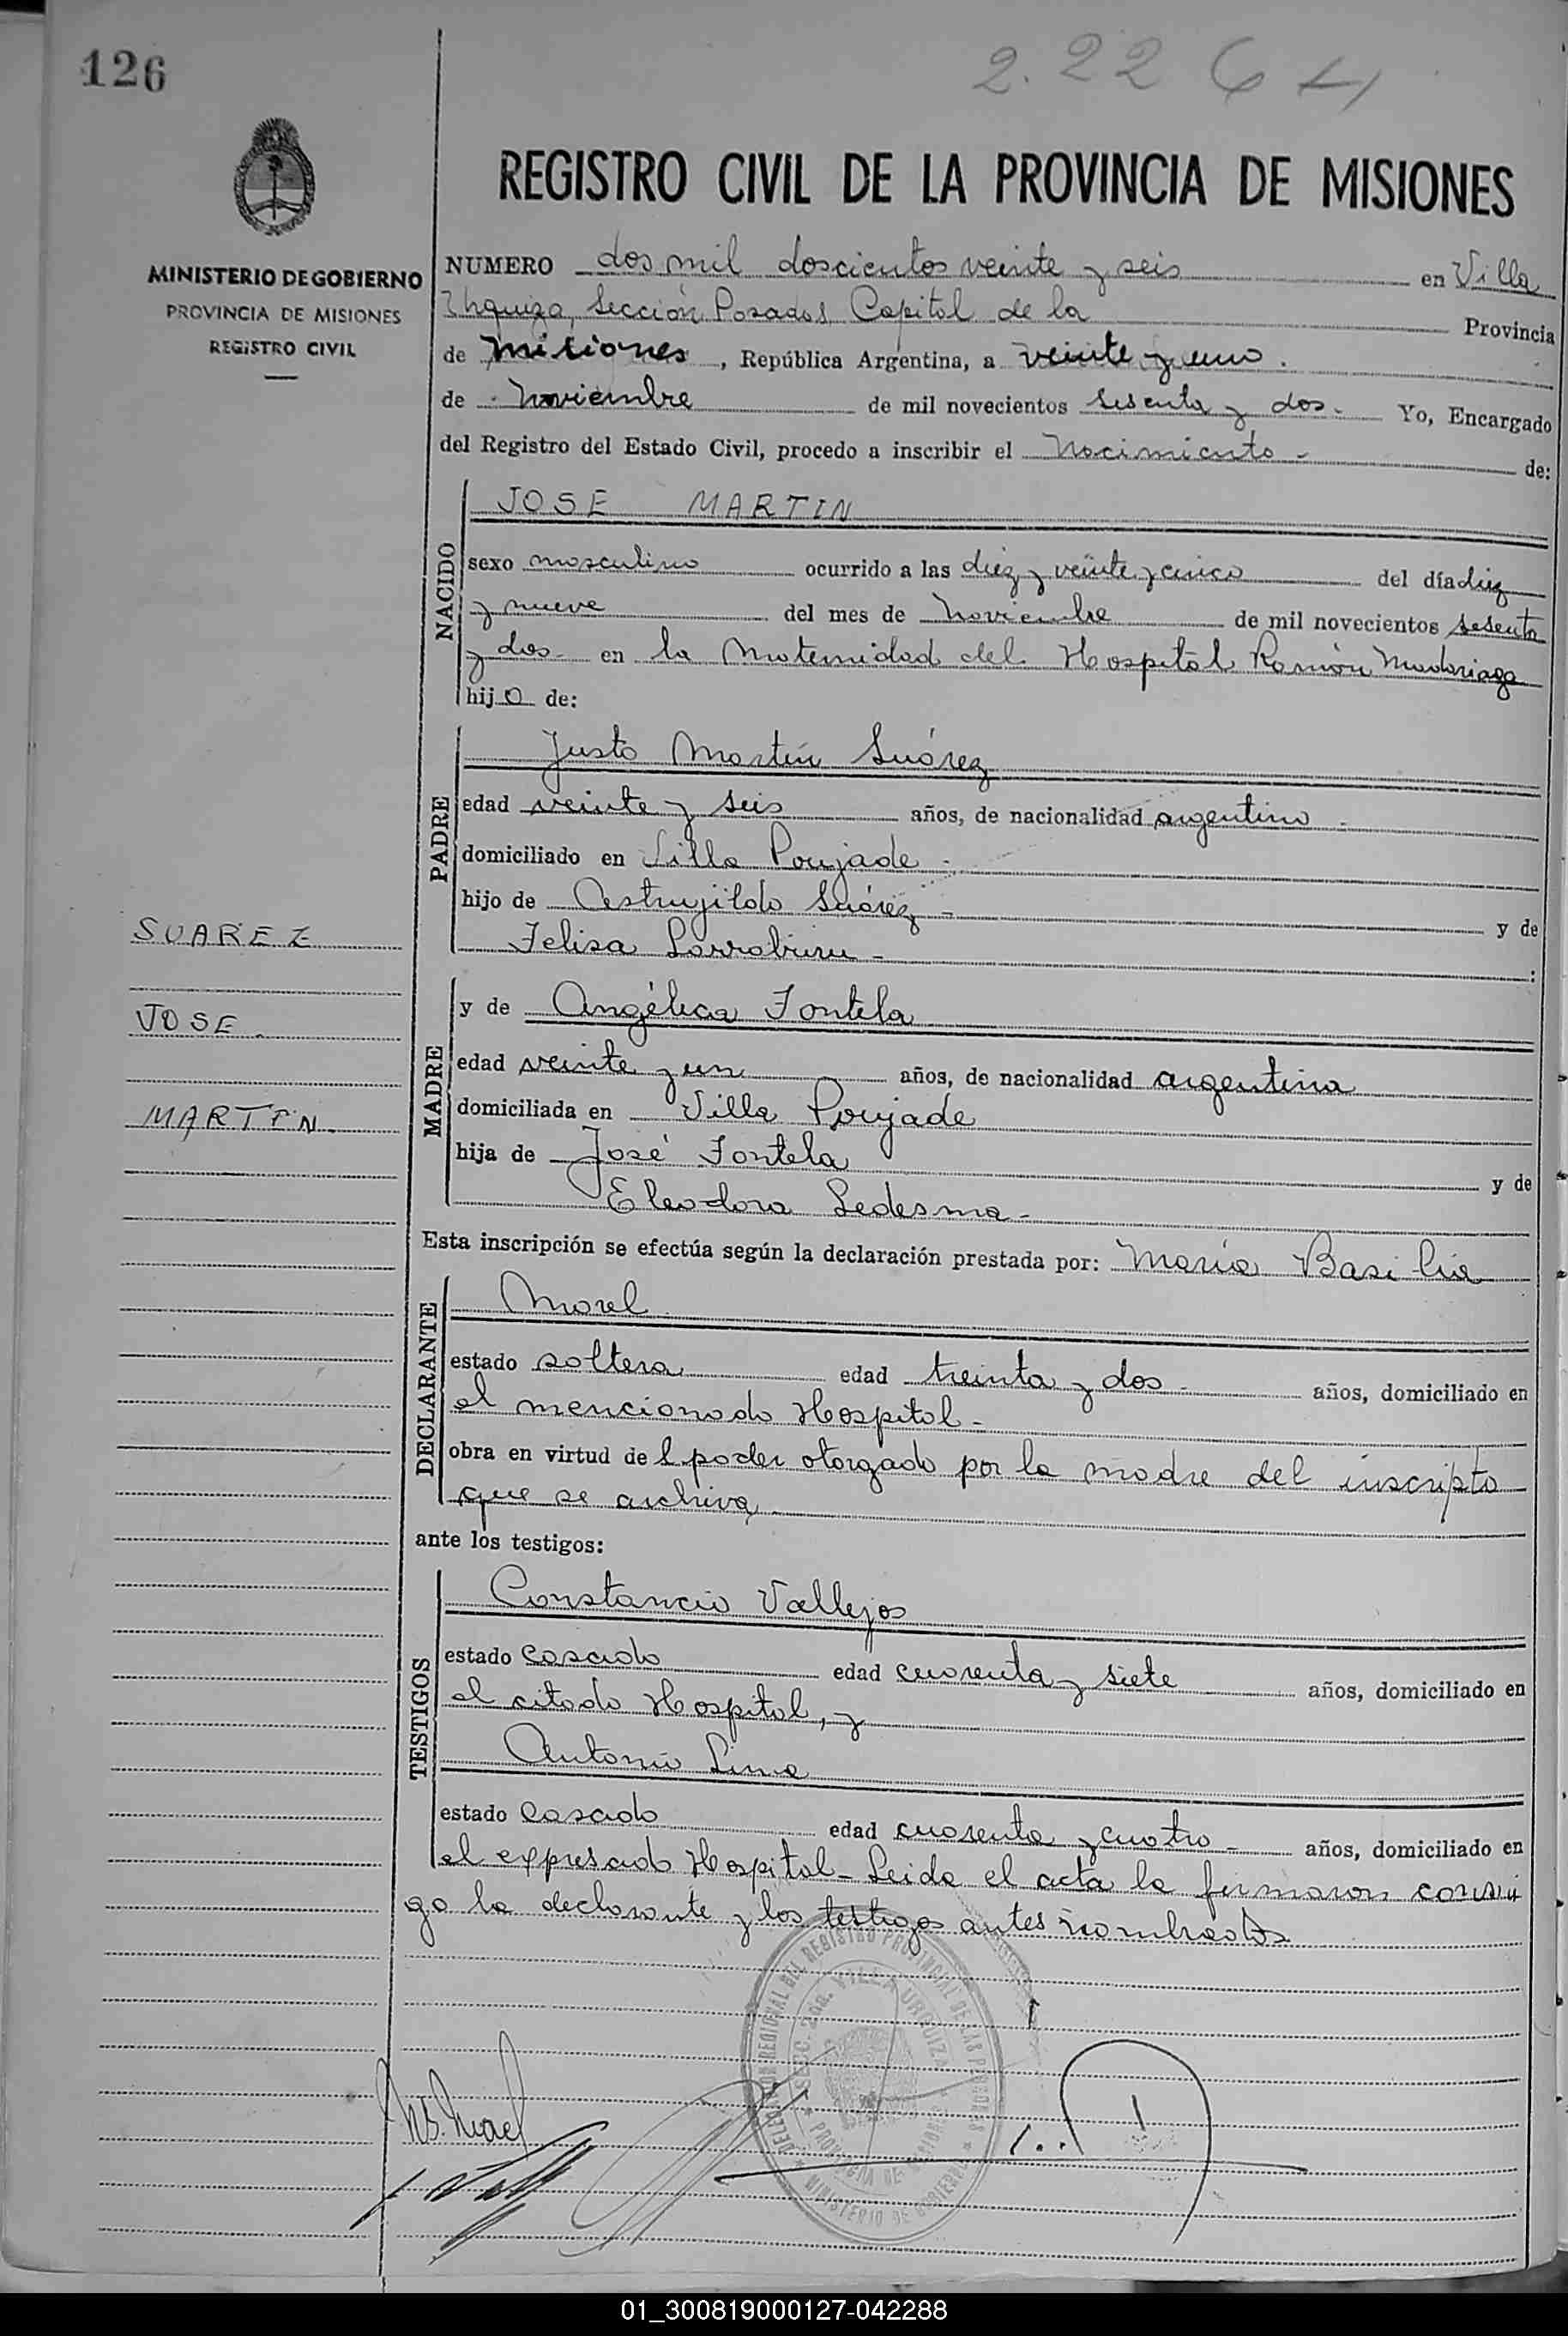 126
2.226
REGISTRO CIVIL DE LA PROVINCIA DE MISIONES
MINISTERIO DE GOBIERNO
PROVINCIA DE MISIONES
REGISTRO CIVIL
NUMERO dos mil doscientos veinte y seis en Villa
Urquiza, Sección Posadas Capital de la Provincia
de Misiones, República Argentina, a veinte y uno.
de Noviembre de mil novecientos sesenta y dos. Yo, Encargado
del Registro del Estado Civil, procedo a inscribir el Nacimiento - de:
NACIDO
JOSE MARTIN
sexo masculino ocurrido a las diez y veinte y cinco del día diez
y nueve del mes de Noviembre de mil novecientos sesenta
y dos- en la Maternidad del Hospital Ramón Madariaga
hijo de:
PADRE
Justo Martín Suárez
edad veinte y seis años, de nacionalidad argentino -
domiciliado en Villa Poujade -
hijo de Astrujildo Suárez - y de
Felisa Larraburu - :
MADRE
y de Angélica Fontela
edad veinte y un años, de nacionalidad argentina
domiciliada en Villa Poujade
hija de José Fontela y de
Eleodora Ledesma -
SUAREZ
JOSE
MARTIN
Esta inscripción se efectúa según la declaración prestada por: María Basilia
DECLARANTE
Morel
estado soltera edad treinta y dos - años, domiciliado en
el mencionado Hospital -
obra en virtud del poder otorgado por la madre del inscripto
que se archiva
ante los testigos:
TESTIGOS
Constancio Vallejos
estado casado edad cuarenta y siete años, domiciliado en
el citado Hospital, y
Antonio Lima
estado casado edad cuarenta y cuatro - años, domiciliado en
el expresado Hospital - Leida el acta la firmaron conmi
go la declarante y los testigos antes nombrados
DELEGACION REGIONAL DEL REGISTRO PROVINCIAL DE LAS PERSONAS
SECC. 2da. VILLA URQUIZA
PROVINCIA DE MISIONES
MINISTERIO DE GOBIERNO
M.B. Morel
01_300819000127-042288